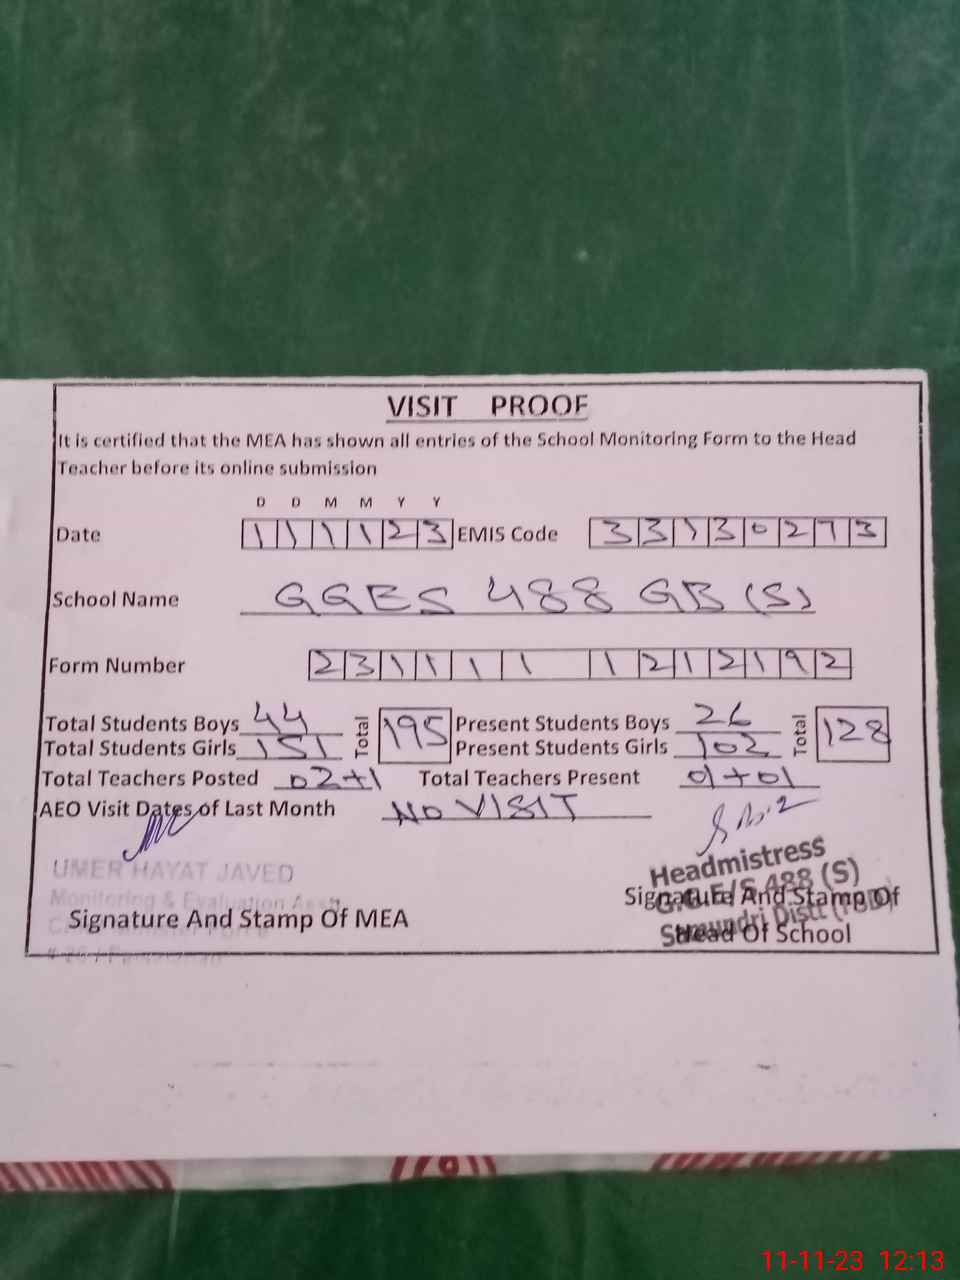 VISIT PROOF
It is certified that the MEA has shown all entries of the School Monitoring Form to the Head
Teacher before its online submission
D D M M Y Y
Date 111123 EMIS Code 33130273
School Name GGES 488 GB (S)
Form Number 2311111212192
Total Students Boys 44 Total 195 Present Students Boys 26 Total 128
Total Students Girls 151 Present Students Girls 102
Total Teachers Posted 02+1 Total Teachers Present 01+01
AEO Visit Dates of Last Month NO VISIT
UMER HAYAT JAVED
Monitoring & Evaluation
Signature And Stamp Of MEA
Headmistress
G.G.E/S 488 (S)
Signature And Stamp Of
Samundri Distt (FSD)
Head Of School
11-11-23 12:13